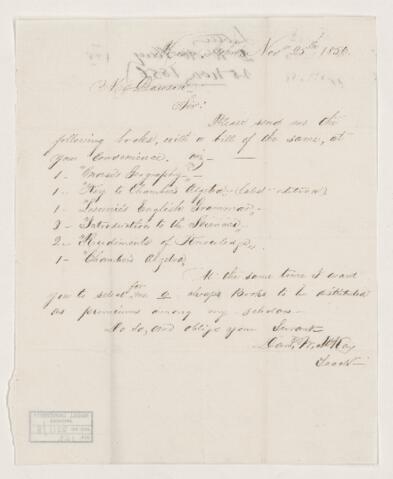 Nov 25th 1850.
Mr Dawson
Sir:
Please send me the
following books, with a bill of the same, at
your convenience. viz —
1 - Geography -
1 - Key to Chambers Algebra - (last edition)
1 - English Grammar -
2 - Introduction to the Sciences
2 - Rudiments of Knowledge,
1 - Chambers Algebra
At the same time I want
you to select for me Books to be distributed
as premiums among my scholars -
Do so, and oblige your Servant
W. McKay